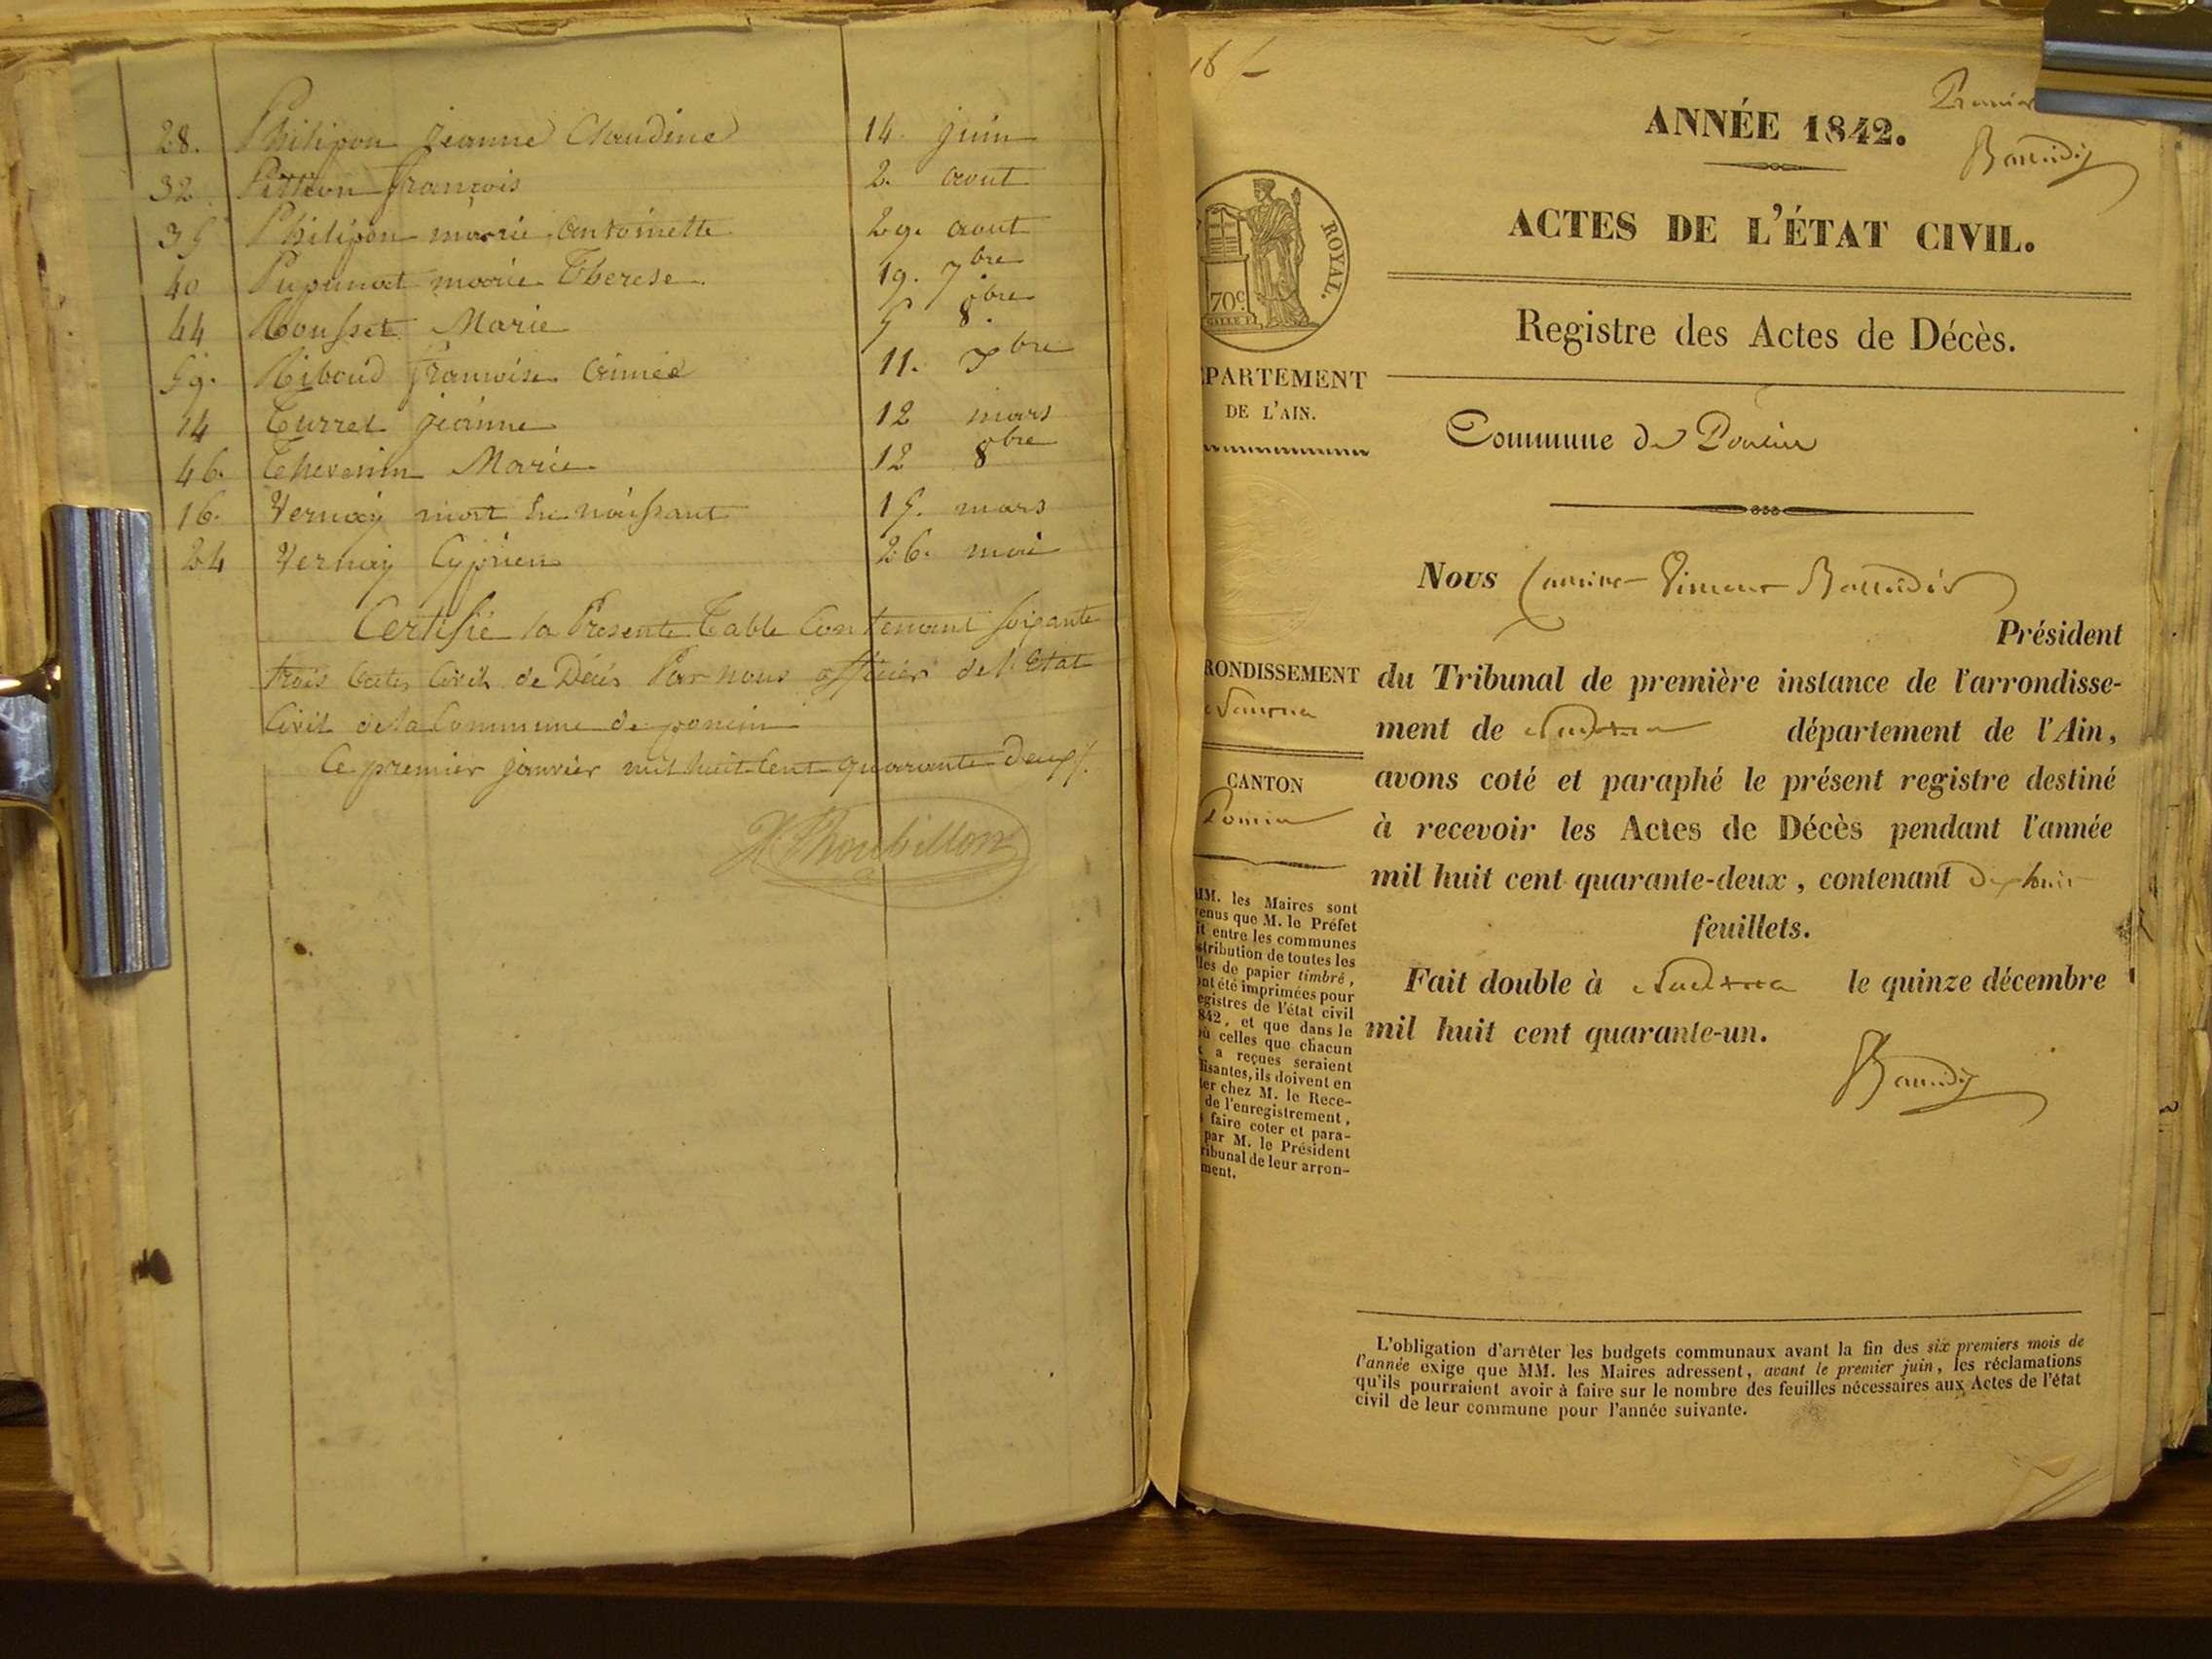 28. Philipon jeanne Claudine 14. juin
32. Pittion françois 2. aout
35 Philipon marie antoinette 29. aout
40 Pupunat marie Therese 19. 7bre
44 Rousset Marie 5 8.bre
59. Riboud françoise aimée 11. Xbre
14 Turrel jeanne 12 mars
46. Thevenin Marie 12 8bre
16. Vernay mort en naissant 15. mars
24 Vernay Cyprien 26. mai
Certifié la Presente Table Contenant soixante
trois actes Civils de Décès Par nous officier de l'Etat
Civil de la Commune de poncin
Ce premier janvier mil huit Cent quarante deux/.
18
Premier
ANNÉE 1842.
ACTES DE L'ÉTAT CIVIL.
Registre des Actes de Décès.
ROYAL.
70c
PARTEMENT
DE L'AIN.
Commune de Poncin
Nous
Président
RONDISSEMENT
du Tribunal de première instance de l'arrondisse-
ment de Nantua département de l'Ain,
Nantua
CANTON
Poncin
avons coté et paraphé le présent registre destiné
à recevoir les Actes de Décès pendant l'année
mil huit cent quarante-deux, contenant dix huit
feuillets.
Fait double à Nantua le quinze décembre
mil huit cent quarante-un.
MM. les Maires sont
enus que M. le Préfet
it entre les communes
stribution de toutes les
lles de papier timbré,
ont été imprimées pour
egistres de l'état civil
842, et que dans le
où celles que chacun
a reçues seraient
fisantes, ils doivent en
ter chez M. le Rece-
de l'enregistrement,
faire coter et para-
par M. le Président
ribunal de leur arron-
ment.
L'obligation d'arrêter les budgets communaux avant la fin des six premiers mois de
l'année exige que MM. les Maires adressent, avant le premier juin, les réclamations
qu'ils pourraient avoir à faire sur le nombre des feuilles nécessaires aux Actes de l'état
civil de leur commune pour l'année suivante.